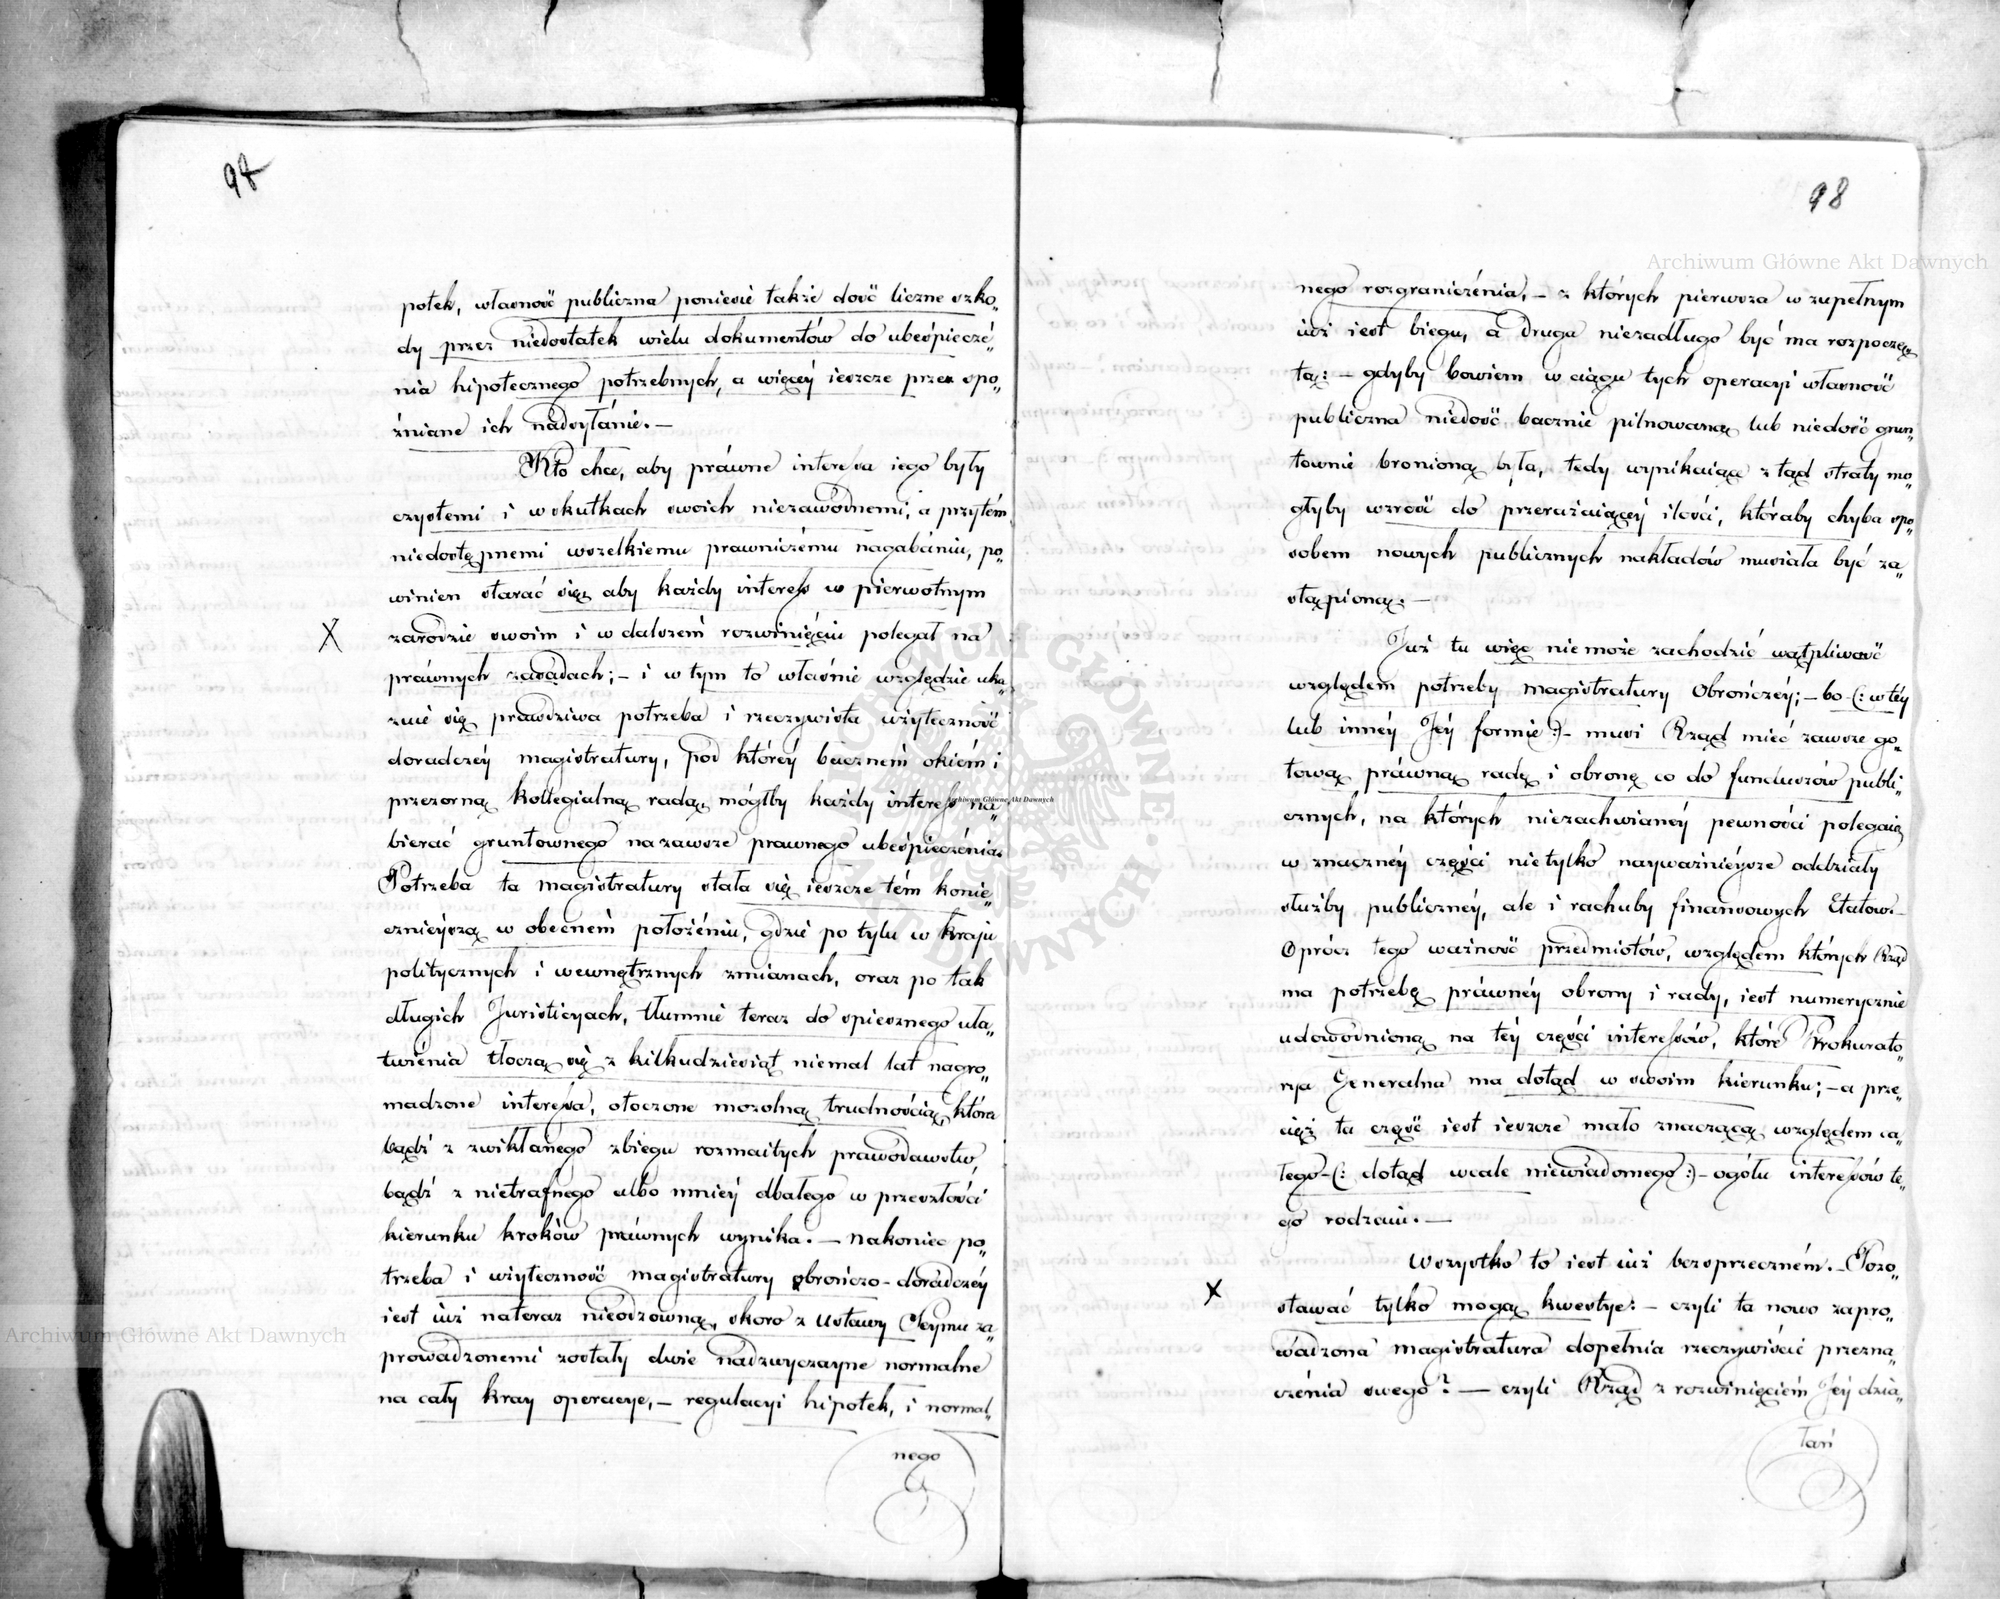 97
potek, własność publiczna poniesie także dość liczne szko„
dy przez niedostatek wielu dokumentów do ubeśpieczé„
nia hipotecznego potrzebnych, a więcéy ieszcze przez spo„
źniane ich nadsyłánie. —
Kto chce, aby práwne interessa iego były
czystemi i w skutkach swoich niezawodnemi, a przytém
niedostępnemi wszelkiemu prawniczému nagabániu, po„
winien starać się, aby każdy interess w pierwotnym
X zarodzie swoim i w dalszém rozwinięciu polegał na
práwnych zasadach; – i w tym to właśnie względzie uka„
zuie się prawdziwa potrzeba i rzeczywista użyteczność
doradczéy magistratury, pod któréy bacznem okiém i
przezorną kollegialną radą, mógłby każdy interess na„
bierać gruntownego na zawsze prawnego ubeśpieczénia.
Potrzeba ta magistratury stała się ieszcze tém konie„
cznieyszą w obecném położéniu, gdzie po tylu w kraju
politycznych i wewnętrznych zmianach, oraz po tak
długich Juristicyach, tłumnie teraz do spiesznego uła„
twiénia tłoczą się z kilkudziesiąt niemal lat nagro„
madzone interessa, otoczone mozolną trudnością, która
bądź z zwikłanego zbiegu rozmaitych prawodawstw,
bądź z nietrafnego albo mniéy dbałego w przeszłości
kierunku kroków práwnych wynika. — nakoniec po„
trzeba i użyteczność magistratury obrończo-doradczéy
iest iuż na teraz nieodzowną, skoro z Ustawy Seymu za„
prowadzonemi zostały dwie nadzwyczayne normalne
na cały kray operacye, – regulacyi hipotek, i normal„
nego
98
nego rozgraniczénia, – z których pierwsza w zupełnym
iuż iest biegu, a druga niezadługo być ma rozpoczę„
tą: – gdyby bowiem w ciągu tych operacyi własność
publiczna niedość bacznie pilnowaną lub niedość grun„
townie bronioną była, tedy wynikaiące z tąd straty mo„
głyby wzrość do przerażaiącéy ilości, któraby chyba spo„
sobem nowych publicznych nakładów musiała być za„
stąpioną. —
Już tu więc niemoże zachodzić wątpliwość
względem potrzeby magistratury Obrończéy; – bo – (: w téy
lub innéy Jéy formie :) – musi Rząd mieć zawsze go„
tową práwną radę i obronę co do funduszów publi„
cznych, na których niezachwianéy pewności polegaią
w znacznéy części nietylko nayważnieysze oddziały
służby publicznéy, ale i rachuby finansowych Etatow. –
Oprócz tego ważność przedmiotów, względem których Rząd
ma potrzebę práwnéy obrony i rady, iest numerycznie
udowodnioną na téy części interessów, które Prokurato„
rya Generalna ma dotąd w swoim kierunku; – a prze„
cięż ta część iest ieszcze mało znaczącą względem ca„
łego – (: dotąd wcale niewiadomego :) – ogółu interessów te„
go rodzaiu. —
Wszystko to iest iuż bezsprzeczném. – Pozo„
X stawać tylko mogą kwestye: – czyli ta nowo zapro„
wadzona magistratura dopełnia rzeczywiście przezna„
czénia swego? — czyli Rząd z rozwinięciém Jéy dzia„
łań